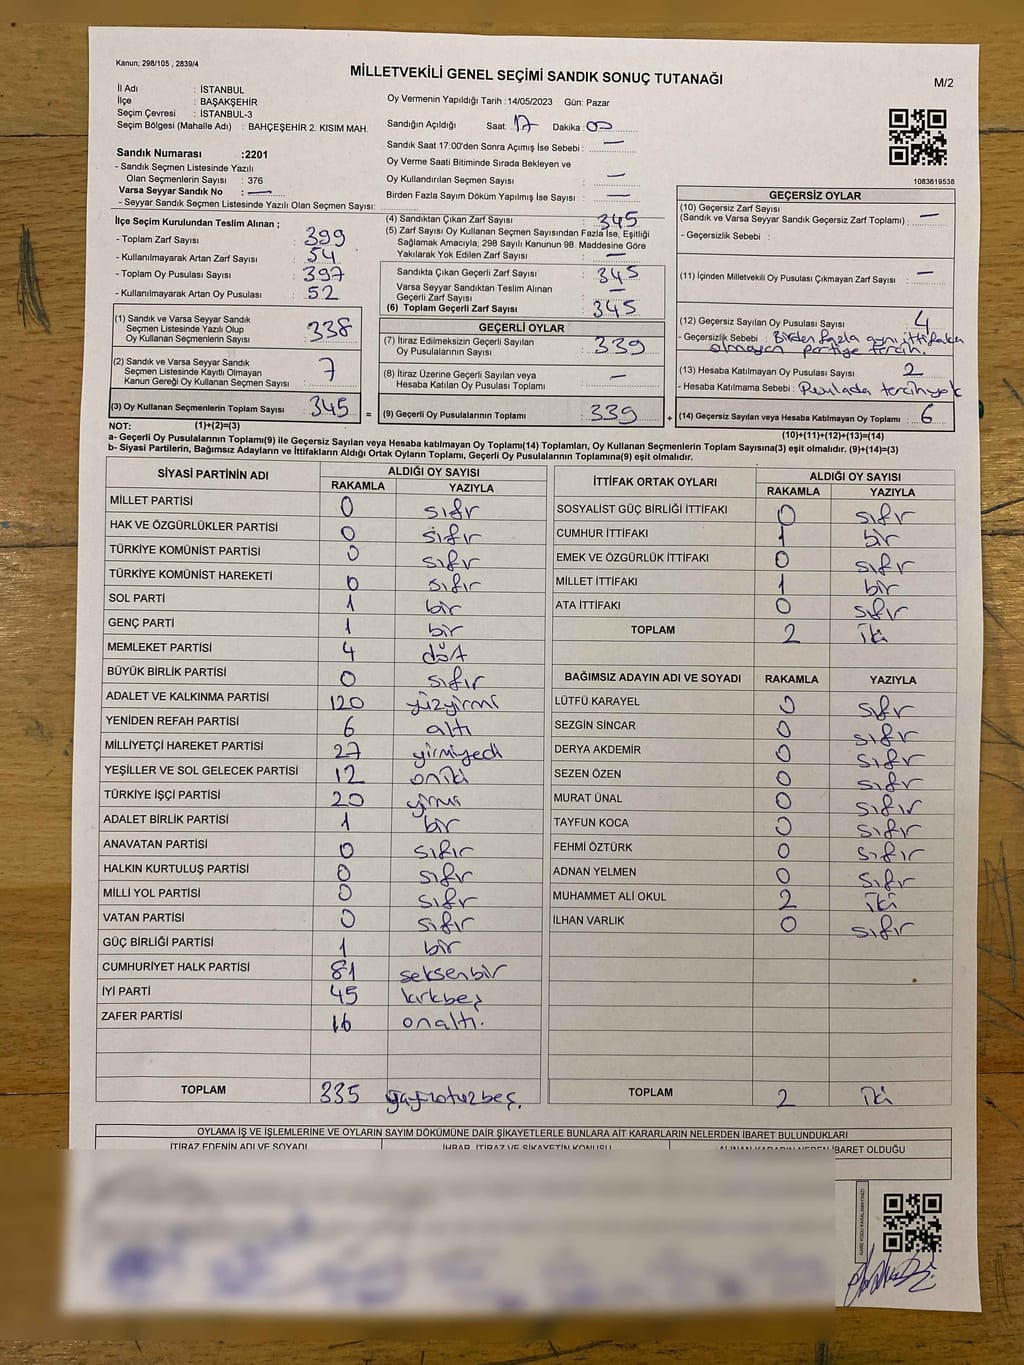 Kanun; 298/105 , 2839/4
MİLLETVEKİLİ GENEL SEÇİMİ SANDIK SONUÇ TUTANAĞI
M/2
İl Adı : İSTANBUL
İlçe : BAŞAKŞEHİR
Seçim Çevresi : İSTANBUL-3
Seçim Bölgesi (Mahalle Adı) : BAHÇEŞEHİR 2. KISIM MAH.
Oy Vermenin Yapıldığı Tarih : 14/05/2023 Gün: Pazar
Sandığın Açıldığı Saat: 17 Dakika : 00
Sandık Saat 17:00'den Sonra Açımış İse Sebebi : —
Oy Verme Saati Bitiminde Sırada Bekleyen ve
Oy Kullandırılan Seçmen Sayısı : —
Birden Fazla Sayım Döküm Yapılmış İse Sayısı : —
Sandık Numarası :2201
- Sandık Seçmen Listesinde Yazılı
Olan Seçmenlerin Sayısı : 376
Varsa Seyyar Sandık No : —
- Seyyar Sandık Seçmen Listesinde Yazılı Olan Seçmen Sayısı:
1083619538
İlçe Seçim Kurulundan Teslim Alınan ;
- Toplam Zarf Sayısı : 399
- Kullanılmayarak Artan Zarf Sayısı : 54
- Toplam Oy Pusulası Sayısı : 397
- Kullanılmayarak Artan Oy Pusulası : 52
(1) Sandık ve Varsa Seyyar Sandık
Seçmen Listesinde Yazılı Olup
Oy Kullanan Seçmenlerin Sayısı : 338
(2) Sandık ve Varsa Seyyar Sandık
Seçmen Listesinde Kayıtlı Olmayan
Kanun Gereği Oy Kullanan Seçmen Sayısı : 7
(3) Oy Kullanan Seçmenlerin Toplam Sayısı : 345 =
(4) Sandıktan Çıkan Zarf Sayısı : 345
(5) Zarf Sayısı Oy Kullanan Seçmen Sayısından Fazla İse, Eşitliği
Sağlamak Amacıyla, 298 Sayılı Kanunun 98. Maddesine Göre
Yakılarak Yok Edilen Zarf Sayısı : —
Sandıkta Çıkan Geçerli Zarf Sayısı : 345
Varsa Seyyar Sandıktan Teslim Alınan
Geçerli Zarf Sayısı : —
(6) Toplam Geçerli Zarf Sayısı : 345
GEÇERLİ OYLAR
(7) İtiraz Edilmeksizin Geçerli Sayılan
Oy Pusulalarının Sayısı : 339
(8) İtiraz Üzerine Geçerli Sayılan veya
Hesaba Katılan Oy Pusulası Toplamı : —
(9) Geçerli Oy Pusulalarının Toplamı : 339 +
GEÇERSİZ OYLAR
(10) Geçersiz Zarf Sayısı
(Sandık ve Varsa Seyyar Sandık Geçersiz Zarf Toplamı) : —
- Geçersizlik Sebebi :
(11) İçinden Milletvekili Oy Pusulası Çıkmayan Zarf Sayısı : —
(12) Geçersiz Sayılan Oy Pusulası Sayısı : 4
- Geçersizlik Sebebi : Birden fazla aynı ittifakta
olmayan partiye tercih.
(13) Hesaba Katılmayan Oy Pusulası Sayısı : 2
- Hesaba Katılmama Sebebi : Pusulada tercih yok
(14) Geçersiz Sayılan veya Hesaba Katılmayan Oy Toplamı : 6
NOT: (1)+(2)=(3)
(10)+(11)+(12)+(13)=(14)
a- Geçerli Oy Pusulalarının Toplamı(9) ile Geçersiz Sayılan veya Hesaba katılmayan Oy Toplamı(14) Toplamları, Oy Kullanan Seçmenlerin Toplam Sayısına(3) eşit olmalıdır. (9)+(14)=(3)
b- Siyasi Partilerin, Bağımsız Adayların ve İttifakların Aldığı Ortak Oyların Toplamı, Geçerli Oy Pusulalarının Toplamına(9) eşit olmalıdır.
SİYASİ PARTİNİN ADI ALDIĞI OY SAYISI
RAKAMLA YAZIYLA
MİLLET PARTİSİ 0 sıfır
HAK VE ÖZGÜRLÜKLER PARTİSİ 0 sıfır
TÜRKİYE KOMÜNİST PARTİSİ 0 sıfır
TÜRKİYE KOMÜNİST HAREKETİ 0 sıfır
SOL PARTİ 1 bir
GENÇ PARTİ 1 bir
MEMLEKET PARTİSİ 4 dört
BÜYÜK BİRLİK PARTİSİ 0 sıfır
ADALET VE KALKINMA PARTİSİ 120 yüzyirmi
YENİDEN REFAH PARTİSİ 6 altı
MİLLİYETÇİ HAREKET PARTİSİ 27 yirmiyedi
YEŞİLLER VE SOL GELECEK PARTİSİ 12 oniki
TÜRKİYE İŞÇİ PARTİSİ 20 yirmi
ADALET BİRLİK PARTİSİ 1 bir
ANAVATAN PARTİSİ 0 sıfır
HALKIN KURTULUŞ PARTİSİ 0 sıfır
MİLLİ YOL PARTİSİ 0 sıfır
VATAN PARTİSİ 0 sıfır
GÜÇ BİRLİĞİ PARTİSİ 1 bir
CUMHURİYET HALK PARTİSİ 81 seksenbir
İYİ PARTİ 45 kırkbeş
ZAFER PARTİSİ 16 onaltı.
TOPLAM 335 üçyüzotuzbeş.
İTTİFAK ORTAK OYLARI ALDIĞI OY SAYISI
RAKAMLA YAZIYLA
SOSYALİST GÜÇ BİRLİĞİ İTTİFAKI 0 sıfır
CUMHUR İTTİFAKI 1 bir
EMEK VE ÖZGÜRLÜK İTTİFAKI 0 sıfır
MİLLET İTTİFAKI 1 bir
ATA İTTİFAKI 0 sıfır
TOPLAM 2 iki
BAĞIMSIZ ADAYIN ADI VE SOYADI RAKAMLA YAZIYLA
LÜTFÜ KARAYEL 0 sıfır
SEZGİN SİNCAR 0 sıfır
DERYA AKDEMİR 0 sıfır
SEZEN ÖZEN 0 sıfır
MURAT ÜNAL 0 sıfır
TAYFUN KOCA 0 sıfır
FEHMİ ÖZTÜRK 0 sıfır
ADNAN YELMEN 0 sıfır
MUHAMMET ALİ OKUL 2 iki
İLHAN VARLIK 0 sıfır
TOPLAM 2 iki
OYLAMA İŞ VE İŞLEMLERİNE VE OYLARIN SAYIM DÖKÜMÜNE DAİR ŞİKAYETLERLE BUNLARA AİT KARARLARIN NELERDEN İBARET BULUNDUKLARI
İTİRAZ EDENİN ADI VE SOYADI İHBAR, İTİRAZ VE ŞİKAYETİN KONUSU ALINAN KARARIN NEDEN İBARET OLDUĞU